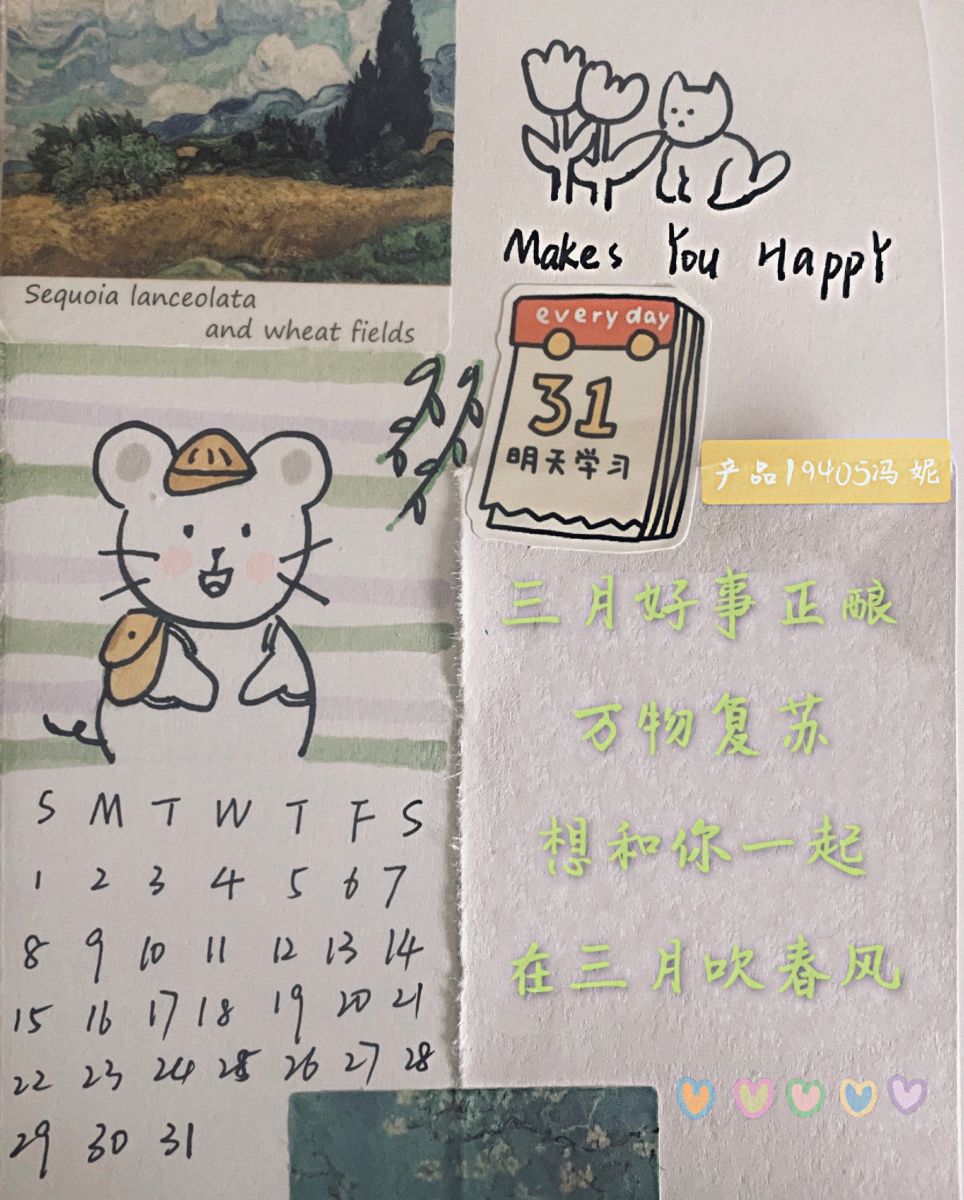 Sequoia lanceolata
and wheat fields
Makes You Happy
every day
31
明天学习
产品19405冯妮
三月好事正酿
万物复苏
想和你一起
在三月吹春风
S M T W T F S
1 2 3 4 5 6 7
8 9 10 11 12 13 14
15 16 17 18 19 20 21
22 23 24 25 26 27 28
29 30 31